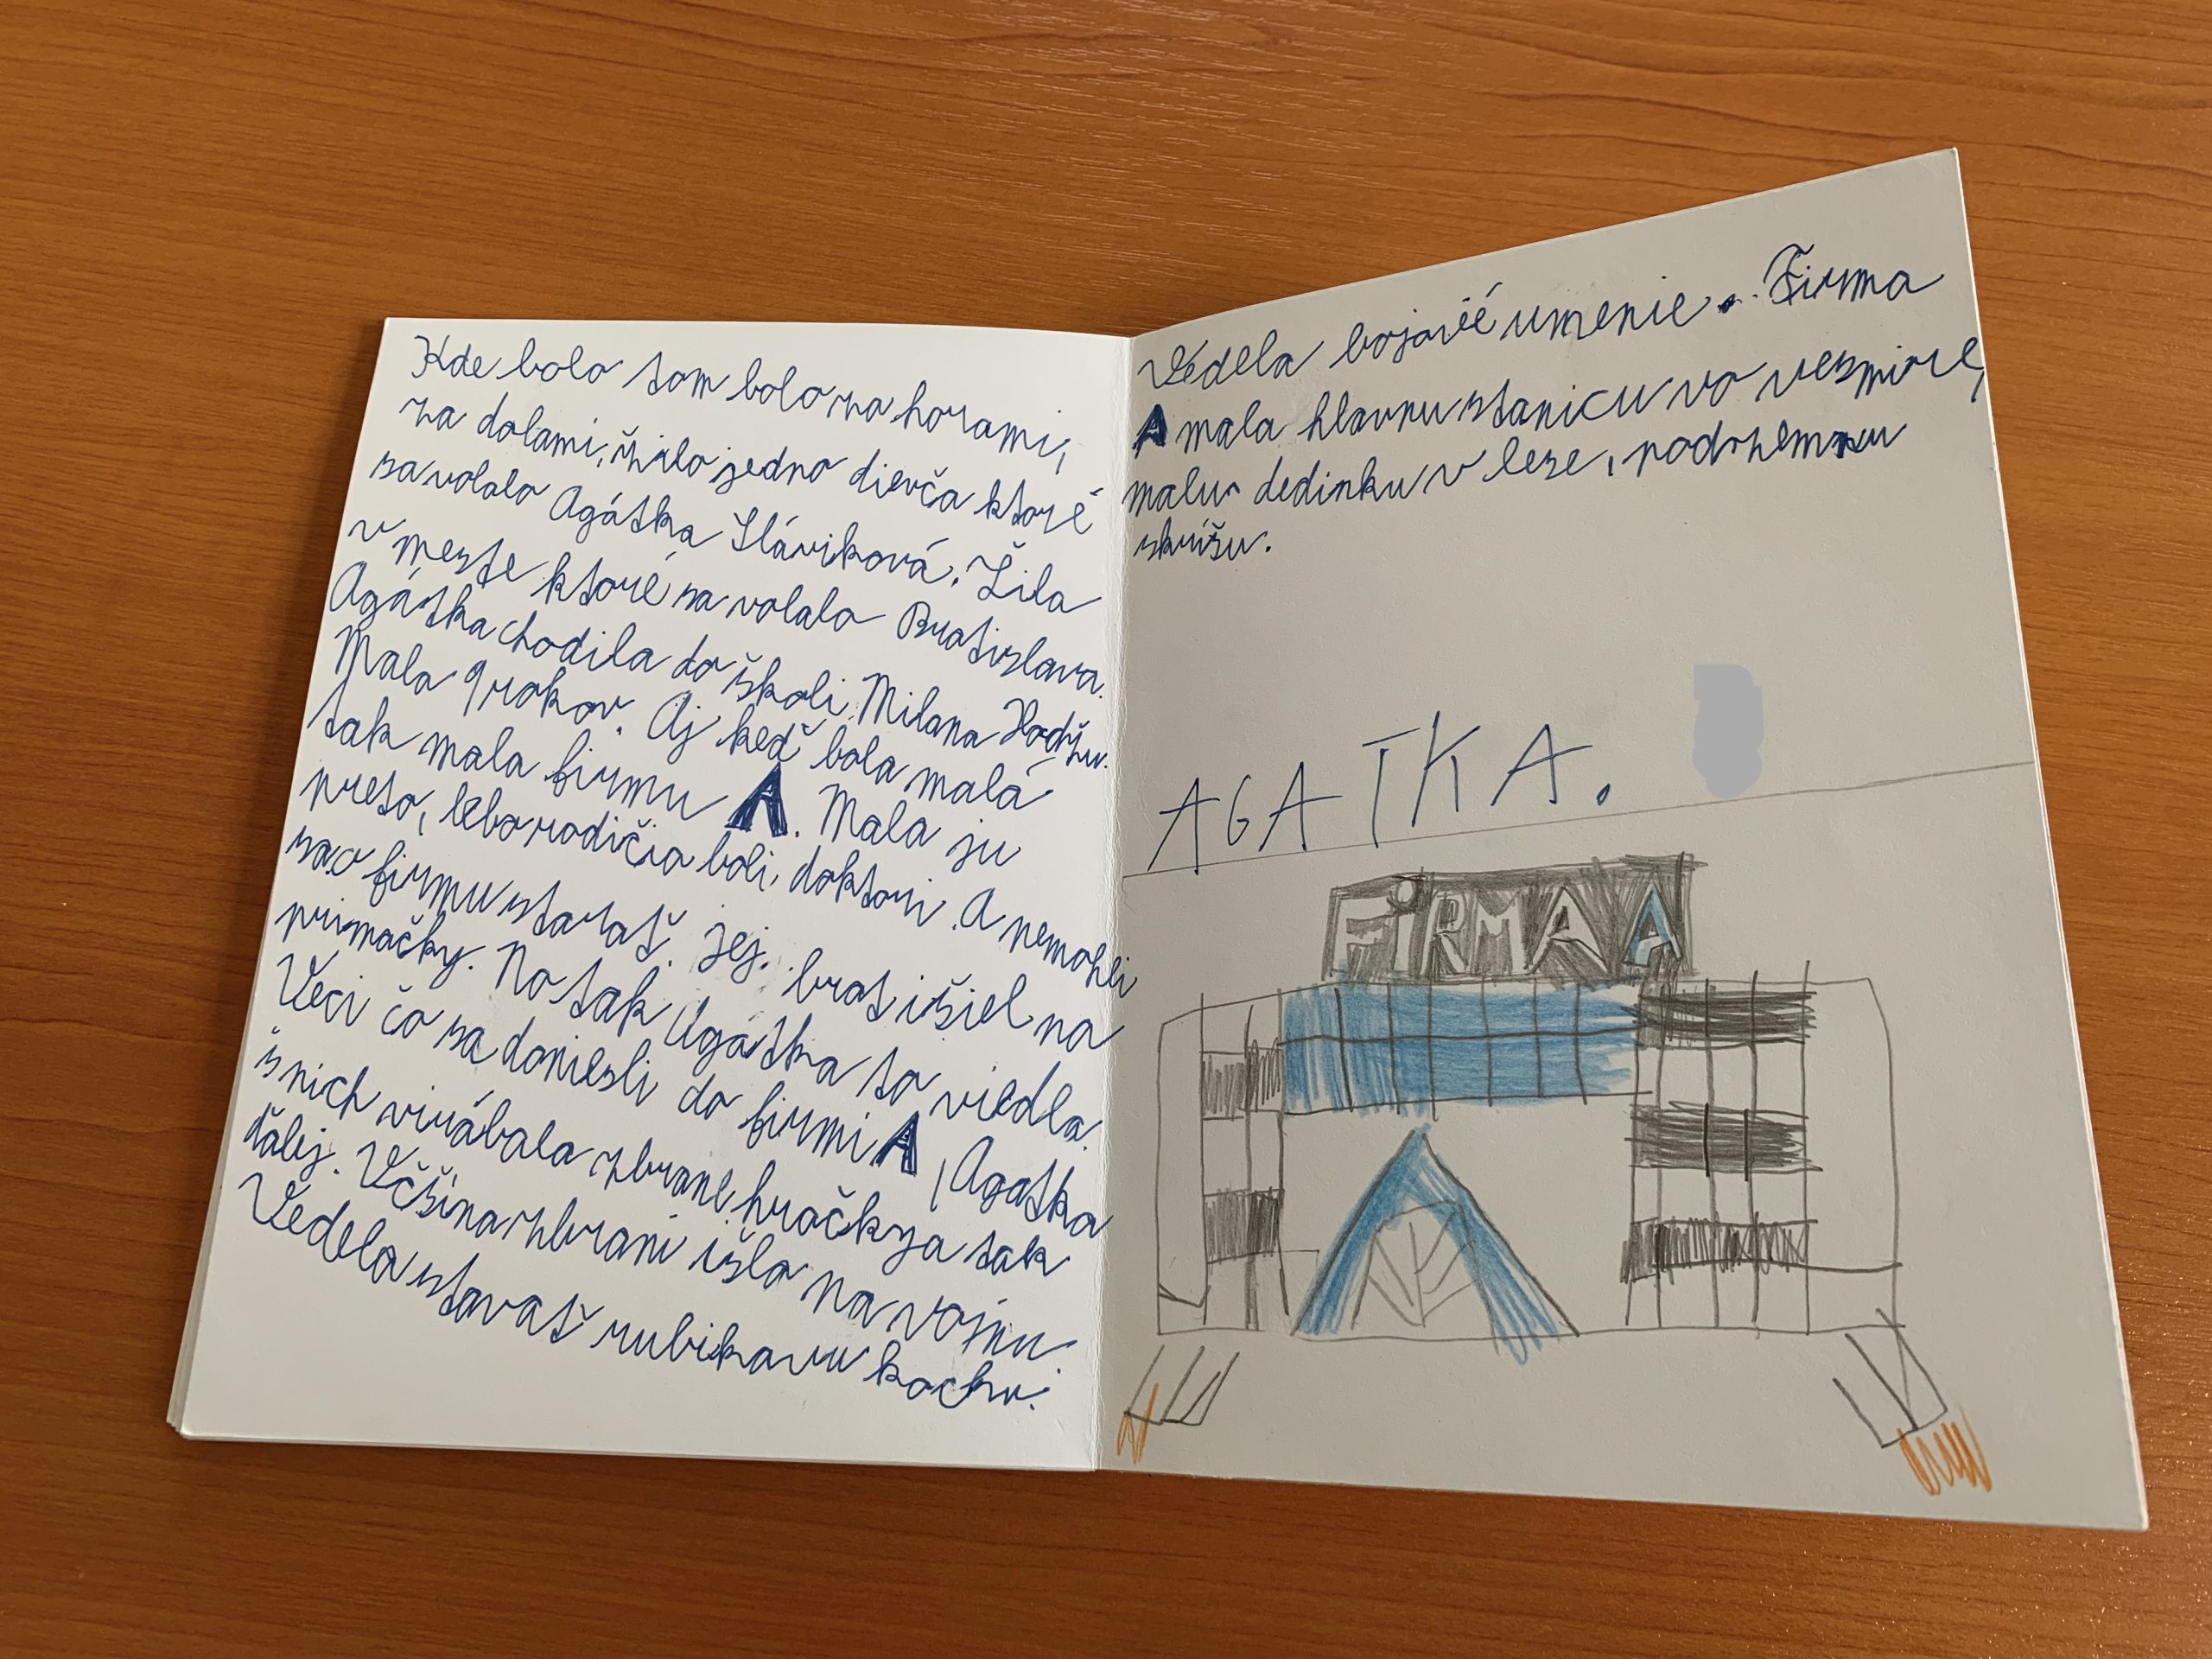 Kde bolo tam bolo za horami,
za dolami, žilo jedno dievča ktoré
sa volalo Agátka Sláviková. Žila
v meste ktoré sa volalo Bratislava.
Agátka chodila do školi Milana Hodžu.
Mala 9 rokov. Aj keď bola malá
tak mala firmu A. Mala ju
preto, lebo rodičia boli doktori. A nemohli
sa o firmu starať. Jej brat išiel na
primačky. No tak Agátka to viedla.
Veci čo sa doniesli do firmi A, Agatka
s nich virábala zbrane, hračky a tak
ďalej. Včšina zbrani išla na vojnu.
Vedela stavať rubikavu kocku.
Vedela bojavié umenie. Firma
A mala hlavnu stanicu vo vesmire,
malu dedinku v lese, podzemnu
skrišu.
AGATKA.
FiRMA A